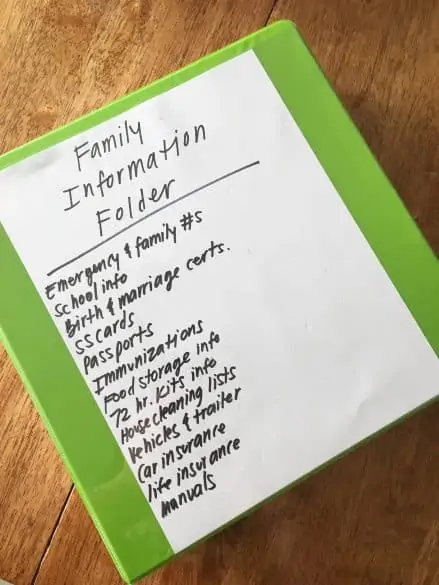 Family
Information
Folder
Emergency & family #s
School info
Birth & marriage certs.
SS cards
Passports
Immunizations
Food storage info
72 hr. Kits info
House cleaning lists
Vehicles & trailer
Car insurance
life insurance
manuals